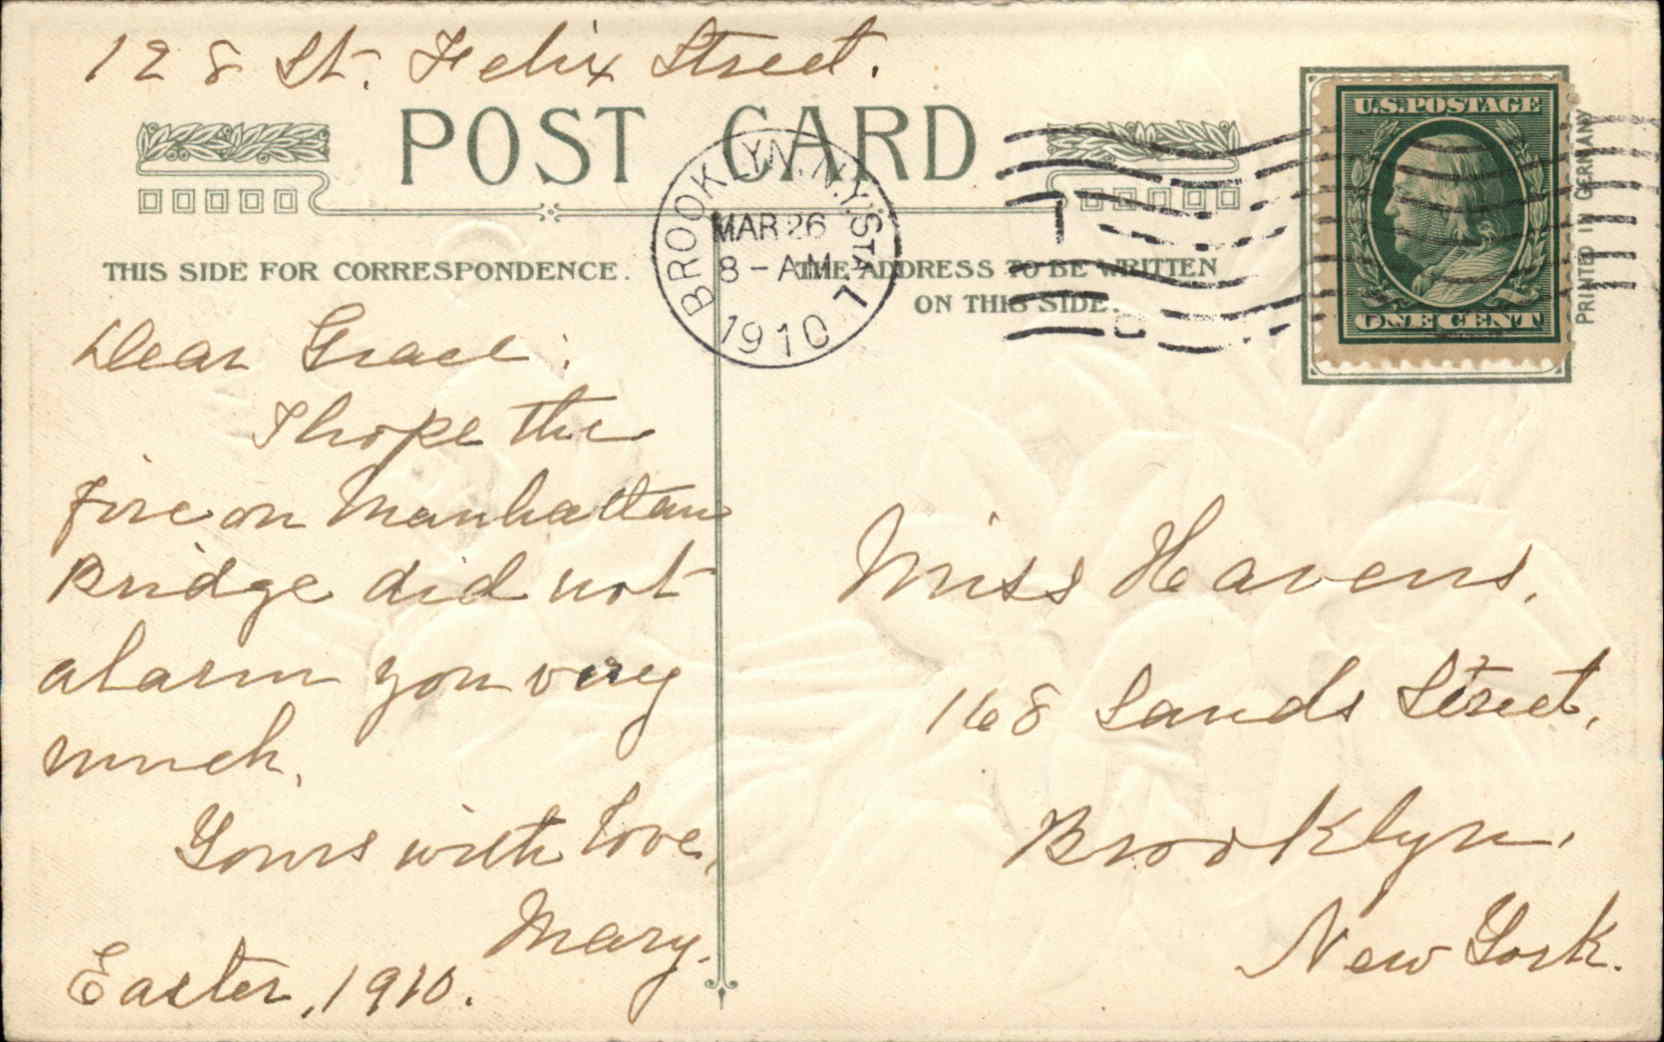 128 St. Felix Street.
POST CARD
BROOKLYN, N.Y. STA. L
MAR 26
8 - AM
1910
U.S. POSTAGE
ONE CENT
PRINTED IN GERMANY
THIS SIDE FOR CORRESPONDENCE.
THE ADDRESS TO BE WRITTEN
ON THIS SIDE.
Dear Grace:
I hope the
fire on Manhattan
Bridge did not
alarm you very
much.
Yours with love,
Mary.
Easter, 1910.
Miss Havens,
168 Sands Street,
Brooklyn,
New York.